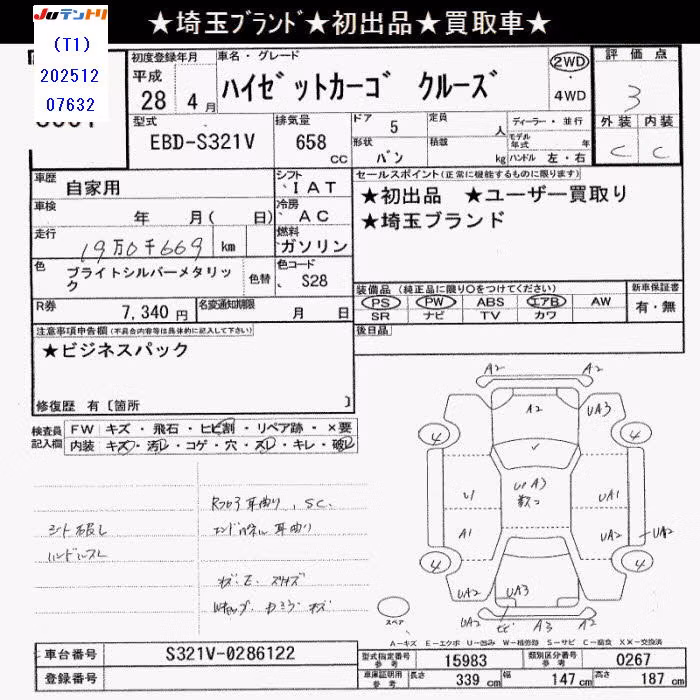 Juテントリ ★埼玉ブランド★初出品★買取車★
(T1)
202512
07632
初度登録年月 車名・グレード
平成 28 年 4 月 ハイゼットカーゴ クルーズ 2WD 4WD
評価点 3
型式 EBD-S321V 排気量 658 CC
ドア 5 定員 人 ディーラー・並行
形状 バン 積載 kg モデル年式 年 ハンドル 左・右
外装 内装
C C
車歴 自家用 シフト IAT
セールスポイント(正常に機能するものに限ります)
★初出品 ★ユーザー買取り
★埼玉ブランド
車検 年 月( 日) 冷房 AC
走行 19万0千669 km 燃料 ガソリン
色 ブライトシルバーメタリック 色替 色コード S28
装備品 (純正品に限り○をつけてください) 新車保証書
PS PW ABS エアB AW 有・無
SR ナビ TV カワ
R券 7,340円 名変通知期限 月 日
後日品
注意事項申告欄(不具合内容等は具体的に記入して下さい)
★ビジネスパック
修復歴 有〔箇所 〕
検査員記入欄 FW キズ・飛石・ヒビ割・リペア跡・×要
内装 キズ・汚レ・コゲ・穴・スレ・キレ・破レ
シート破レ
ハンドルスレ
A2 A2
A2 UA3
4 4
U1 UA3 UA1
A1 UA2 UA2
4 4
UA2 UA3 UA2
A2 A3 A2
スペア
A-キズ E-エクボ U-凹み W-補修跡 S-サビ C-腐食 XX-交換済
車台番号 S321V-0286122
型式指定番号 参考 15983 類別区分番号 参考 0267
登録番号
車庫証明用 参考 長さ 339 cm 幅 147 cm 高さ 187 cm